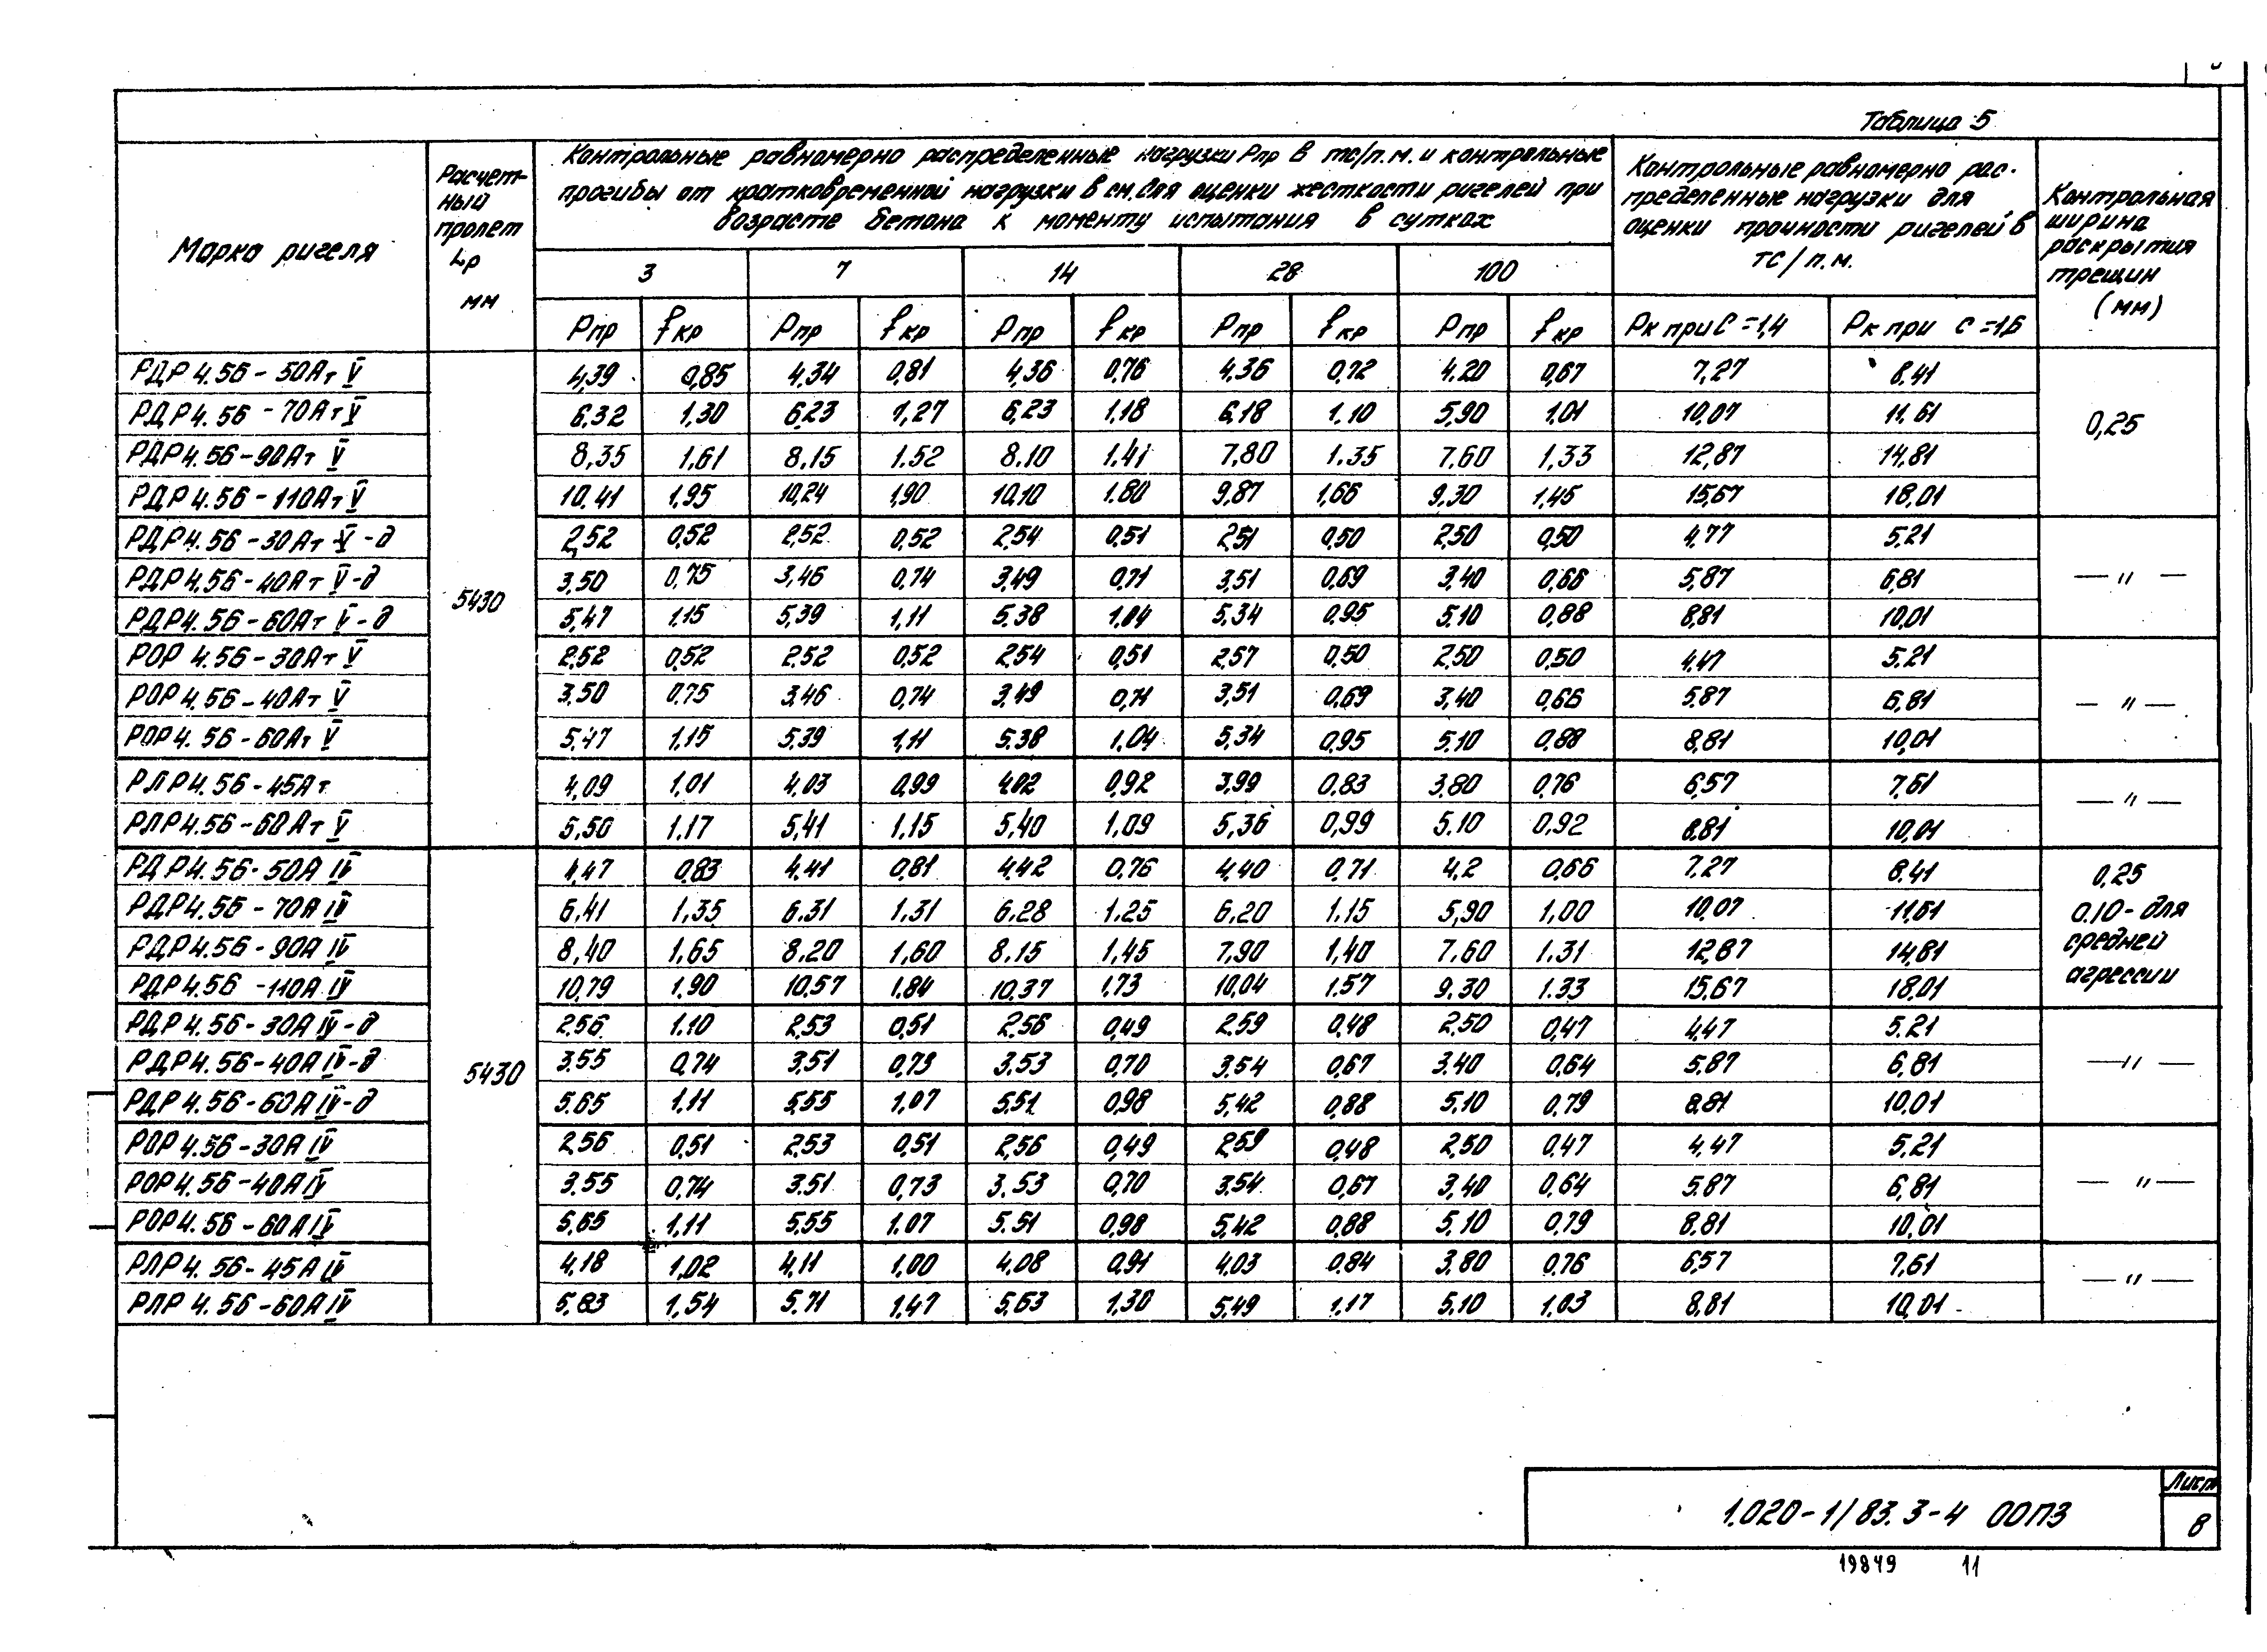 Таблица 5
Марка ригеля
Расчет-
ный
пролет
Lр
мм
Контрольные равномерно распределенные нагрузки Рпр в тс/п.м. и контрольные
прогибы от кратковременной нагрузки в см. для оценки жесткости ригелей при
возрасте бетона к моменту испытания в сутках
Контрольные равномерно рас-
пределенные нагрузки для
оценки прочности ригелей в
тс/п.м.
Контрольная
ширина
раскрытия
трещин
(мм)
3 7 14 28 100
Рпр fкр Рпр fкр Рпр fкр Рпр fкр Рпр fкр Рк при С=1,4 Рк при С=1,6
РДР 4.56-50Ат V 4,39 0,85 4,34 0,81 4,36 0,76 4,36 0,72 4.20 0,67 7,27 8.41
РДР 4.56-70Ат V 6,32 1,30 6,23 1,27 6,23 1,18 6,18 1.10 5,90 1,01 10,07 11,61 0,25
РДР 4.56-90Ат V 8,35 1.61 8,15 1.52 8.10 1.41 7,80 1.35 7,60 1,33 12,87 14,81
РДР 4.56-110Ат V 10,41 1,95 10,24 1,90 10,10 1.80 9,87 1,66 9,30 1,45 15,67 18,01
РДР 4.56-30Ат V-д 2,52 0,52 2,52 0,52 2,54 0,51 2,51 0,50 2,50 0,50 4,77 5,21
РДР 4.56-40Ат V-д 5430 3,50 0,75 3,46 0,74 3,49 0,71 3,51 0,69 3,40 0,66 5,87 6,81 — " —
РДР 4.56-60Ат V-д 5,47 1.15 5,39 1,11 5.38 1,04 5,34 0,95 5,10 0,88 8,81 10,01
РОР 4.56-30Ат V 2,52 0,52 2,52 0,52 2,54 0,51 2,57 0,50 2,50 0,50 4,47 5,21
РОР 4.56-40Ат V 3,50 0,75 3,46 0,74 3,49 0,71 3,51 0,69 3,40 0,66 5,87 6,81 — " —
РОР 4.56-60Ат V 5,47 1,15 5,39 1,11 5.38 1,04 5,34 0,95 5.10 0,88 8,81 10,01
РЛР 4.56-45Ат 4,09 1,01 4,03 0,99 4,02 0,92 3,99 0,83 3,80 0,76 6,57 7,61
РЛР 4.56-60Ат V 5,50 1.17 5,41 1,15 5,40 1,09 5,36 0,99 5.10 0,92 8,81 10,01 — " —
РДР 4.56-50А IV 4,47 0,83 4,41 0,81 4,42 0,76 4,40 0,71 4,2 0,66 7,27 8.41 0,25
РДР 4.56-70А IV 6,41 1,35 6.31 1.31 6.28 1.25 6.20 1.15 5,90 1,00 10,07 11,61 0.10-для
РДР 4.56-90А IV 8,40 1.65 8.20 1,60 8.15 1,45 7,90 1,40 7,60 1.31 12,87 14,81 средней
РДР 4.56-110А IV 10,79 1.90 10.57 1.84 10.37 1,73 10,04 1.57 9.30 1.33 15,67 18,01 агрессии
РДР 4.56-30А IV-д 2.56 1.10 2,53 0,51 2.56 0,49 2.59 0,48 2,50 0,47 4,47 5.21
РДР 4.56-40А IV-д 5430 3.55 0,74 3,51 0,73 3.53 0,70 3.54 0,67 3.40 0,64 5,87 6,81 — " —
РДР 4.56-60А IV-д 5.65 1.11 5,55 1,07 5,51 0,98 5,42 0,88 5,10 0,79 8,81 10,01
РОР 4.56-30А IV 2.56 0,51 2,53 0,51 2,56 0,49 2,59 0,48 2,50 0,47 4,47 5,21
РОР 4.56-40А IV 3.55 0,74 3.51 0,73 3.53 0,70 3.54 0,67 3,40 0,64 5.87 6,81 — " —
РОР 4.56-60А IV 5,65 1,11 5,55 1.07 5.51 0,98 5,42 0,88 5,10 0,79 8.81 10,01
РЛР 4.56-45А IV 4,18 1,02 4,11 1,00 4,08 0,91 4,03 0,84 3,80 0,76 6,57 7,61
РЛР 4.56-60А IV 5,83 1,54 5.71 1,47 5,63 1,30 5,49 1.17 5,10 1,03 8,81 10,01 — " —
1.020-1/83. 3-4 00ПЗ
Лист
8
19849 11